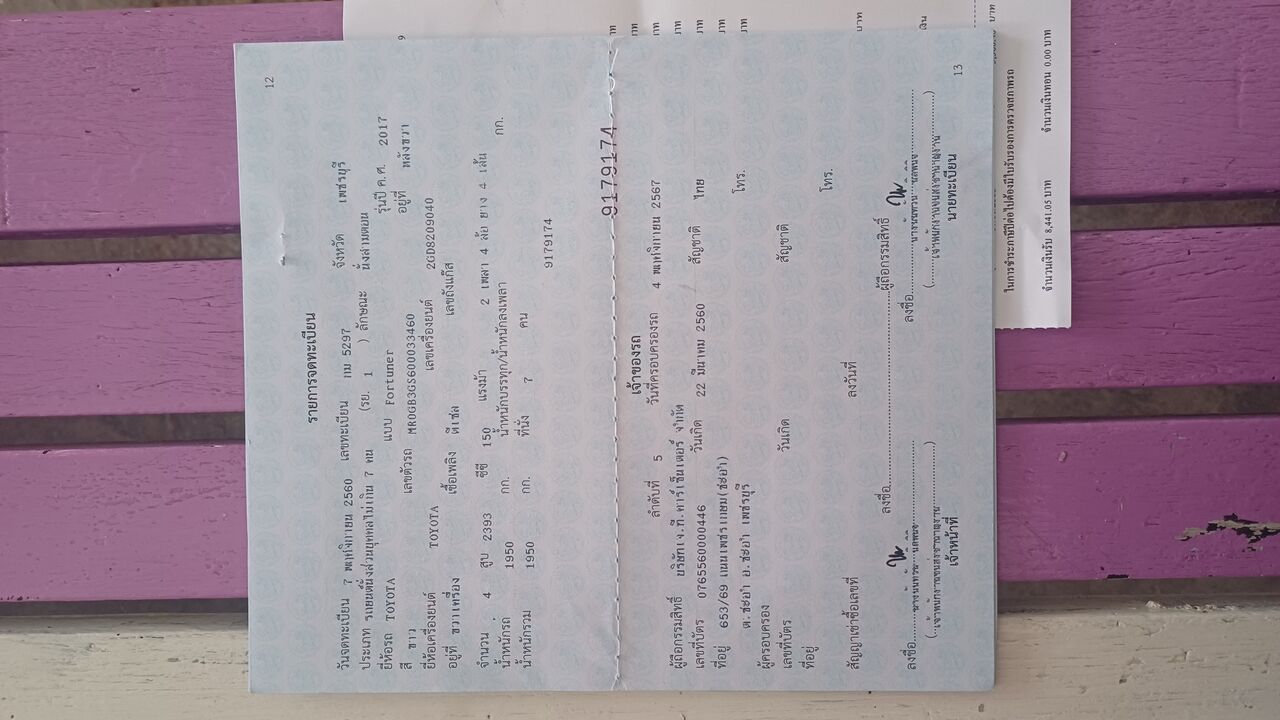 12
รายการจดทะเบียน
วันจดทะเบียน 7 พฤศจิกายน 2560 เลขทะเบียน กม 5297 จังหวัด เพชรบุรี
ประเภท รถยนต์นั่งส่วนบุคคลไม่เกิน 7 คน (รย. 1 ) ลักษณะ นั่งสามตอน
ยี่ห้อรถ TOYOTA แบบ Fortuner รุ่นปี ค.ศ. 2017
สี ขาว เลขตัวรถ MR0GB3GS600033460 อยู่ที่ หลังขวา
ยี่ห้อเครื่องยนต์ TOYOTA เลขเครื่องยนต์ 2GD8209040
อยู่ที่ ขวาเครื่อง เชื้อเพลิง ดีเซล เลขถังแก๊ส
จำนวน 4 สูบ 2393 ซีซี 150 แรงม้า 2 เพลา 4 ล้อ ยาง 4 เส้น
น้ำหนักรถ 1950 กก. น้ำหนักบรรทุก/น้ำหนักลงเพลา กก.
น้ำหนักรวม 1950 กก. ที่นั่ง 7 คน
9179174
9179174
เจ้าของรถ
ลำดับที่ 5 วันที่ครอบครองรถ 4 พฤศจิกายน 2567
ผู้ถือกรรมสิทธิ์ บริษัทเจ.ที.คาร์เซ็นเตอร์ จำกัด
เลขที่บัตร 0765560000446 วันเกิด 22 มีนาคม 2560 สัญชาติ ไทย
ที่อยู่ 653/69 ถนนเพชรเกษม(ชะอำ) โทร.
ต.ชะอำ อ.ชะอำ เพชรบุรี
ผู้ครอบครอง
เลขที่บัตร วันเกิด สัญชาติ
ที่อยู่ โทร.
สัญญาเช่าซื้อเลขที่ ลงวันที่
ลงชื่อ ผู้ถือกรรมสิทธิ์
ลงชื่อ ลงชื่อ
เจ้าหน้าที่ นายทะเบียน
13
บาท
บาท
บาท
บาท
บาท
บาท
ในการชำระภาษีปีต่อไปต้องมีใบรับรองการตรวจสภาพรถ
จำนวนเงินรับ 8,441.05 บาท จำนวนเงินทอน 0.00 บาท